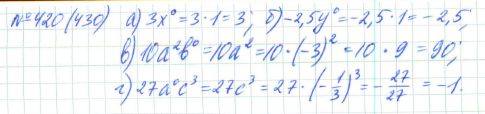 №420 (430) а) 3x⁰ = 3·1 = 3; б) -2,5y⁰ = -2,5·1 = -2,5;
в) 10a²b⁰ = 10a² = 10·(-3)² = 10·9 = 90;
г) 27a⁰c³ = 27c³ = 27·(-1/3)³ = -27/27 = -1.